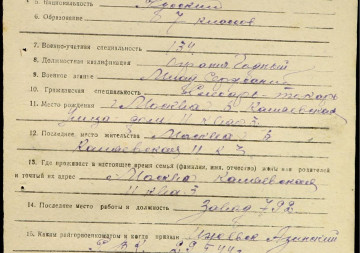 5. Национальность Русский
6. Образование 7 классов
7. Военно-учетная специальность 134
8. Должностная квалификация
9. Воинское звание Млад Сержант
10. Гражданская специальность Слесарь-токарь
11. Место рождения г Москва 3 Катаевская
улица дом 11 квар 3
12. Последнее место жительства Москва 3
Катаевская 11 к 3
13. Где проживает в настоящее время семья (фамилия, имя, отчество) жены или родителей
и точный их адрес Москва Катаевская
11 ква 3
14. Последнее место работы и должность Завод 792
15. Каким райвоенкоматом и когда призван Ижевск Азинский